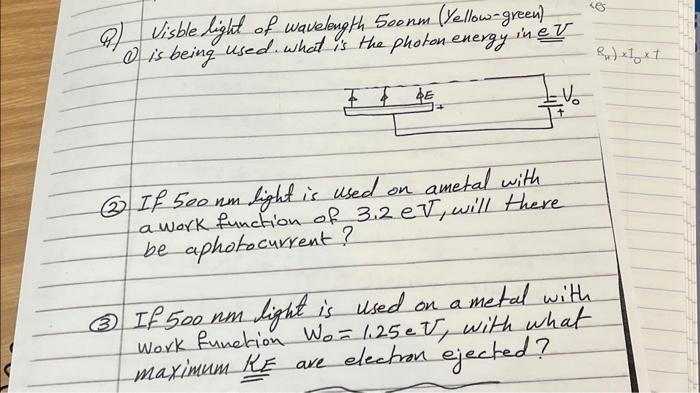 Q) Visble light of wavelength 500nm (Yellow-green)
① is being used. what is the photon energy in eV
E
+
V₀
+
② If 500 nm light is used on ametal with
a work function of 3.2 eV, will there
be aphotocurrent?
③ If 500 nm light is used on a metal with
Work function W₀ = 1.25 eV, with what
maximum KE are electron ejected?